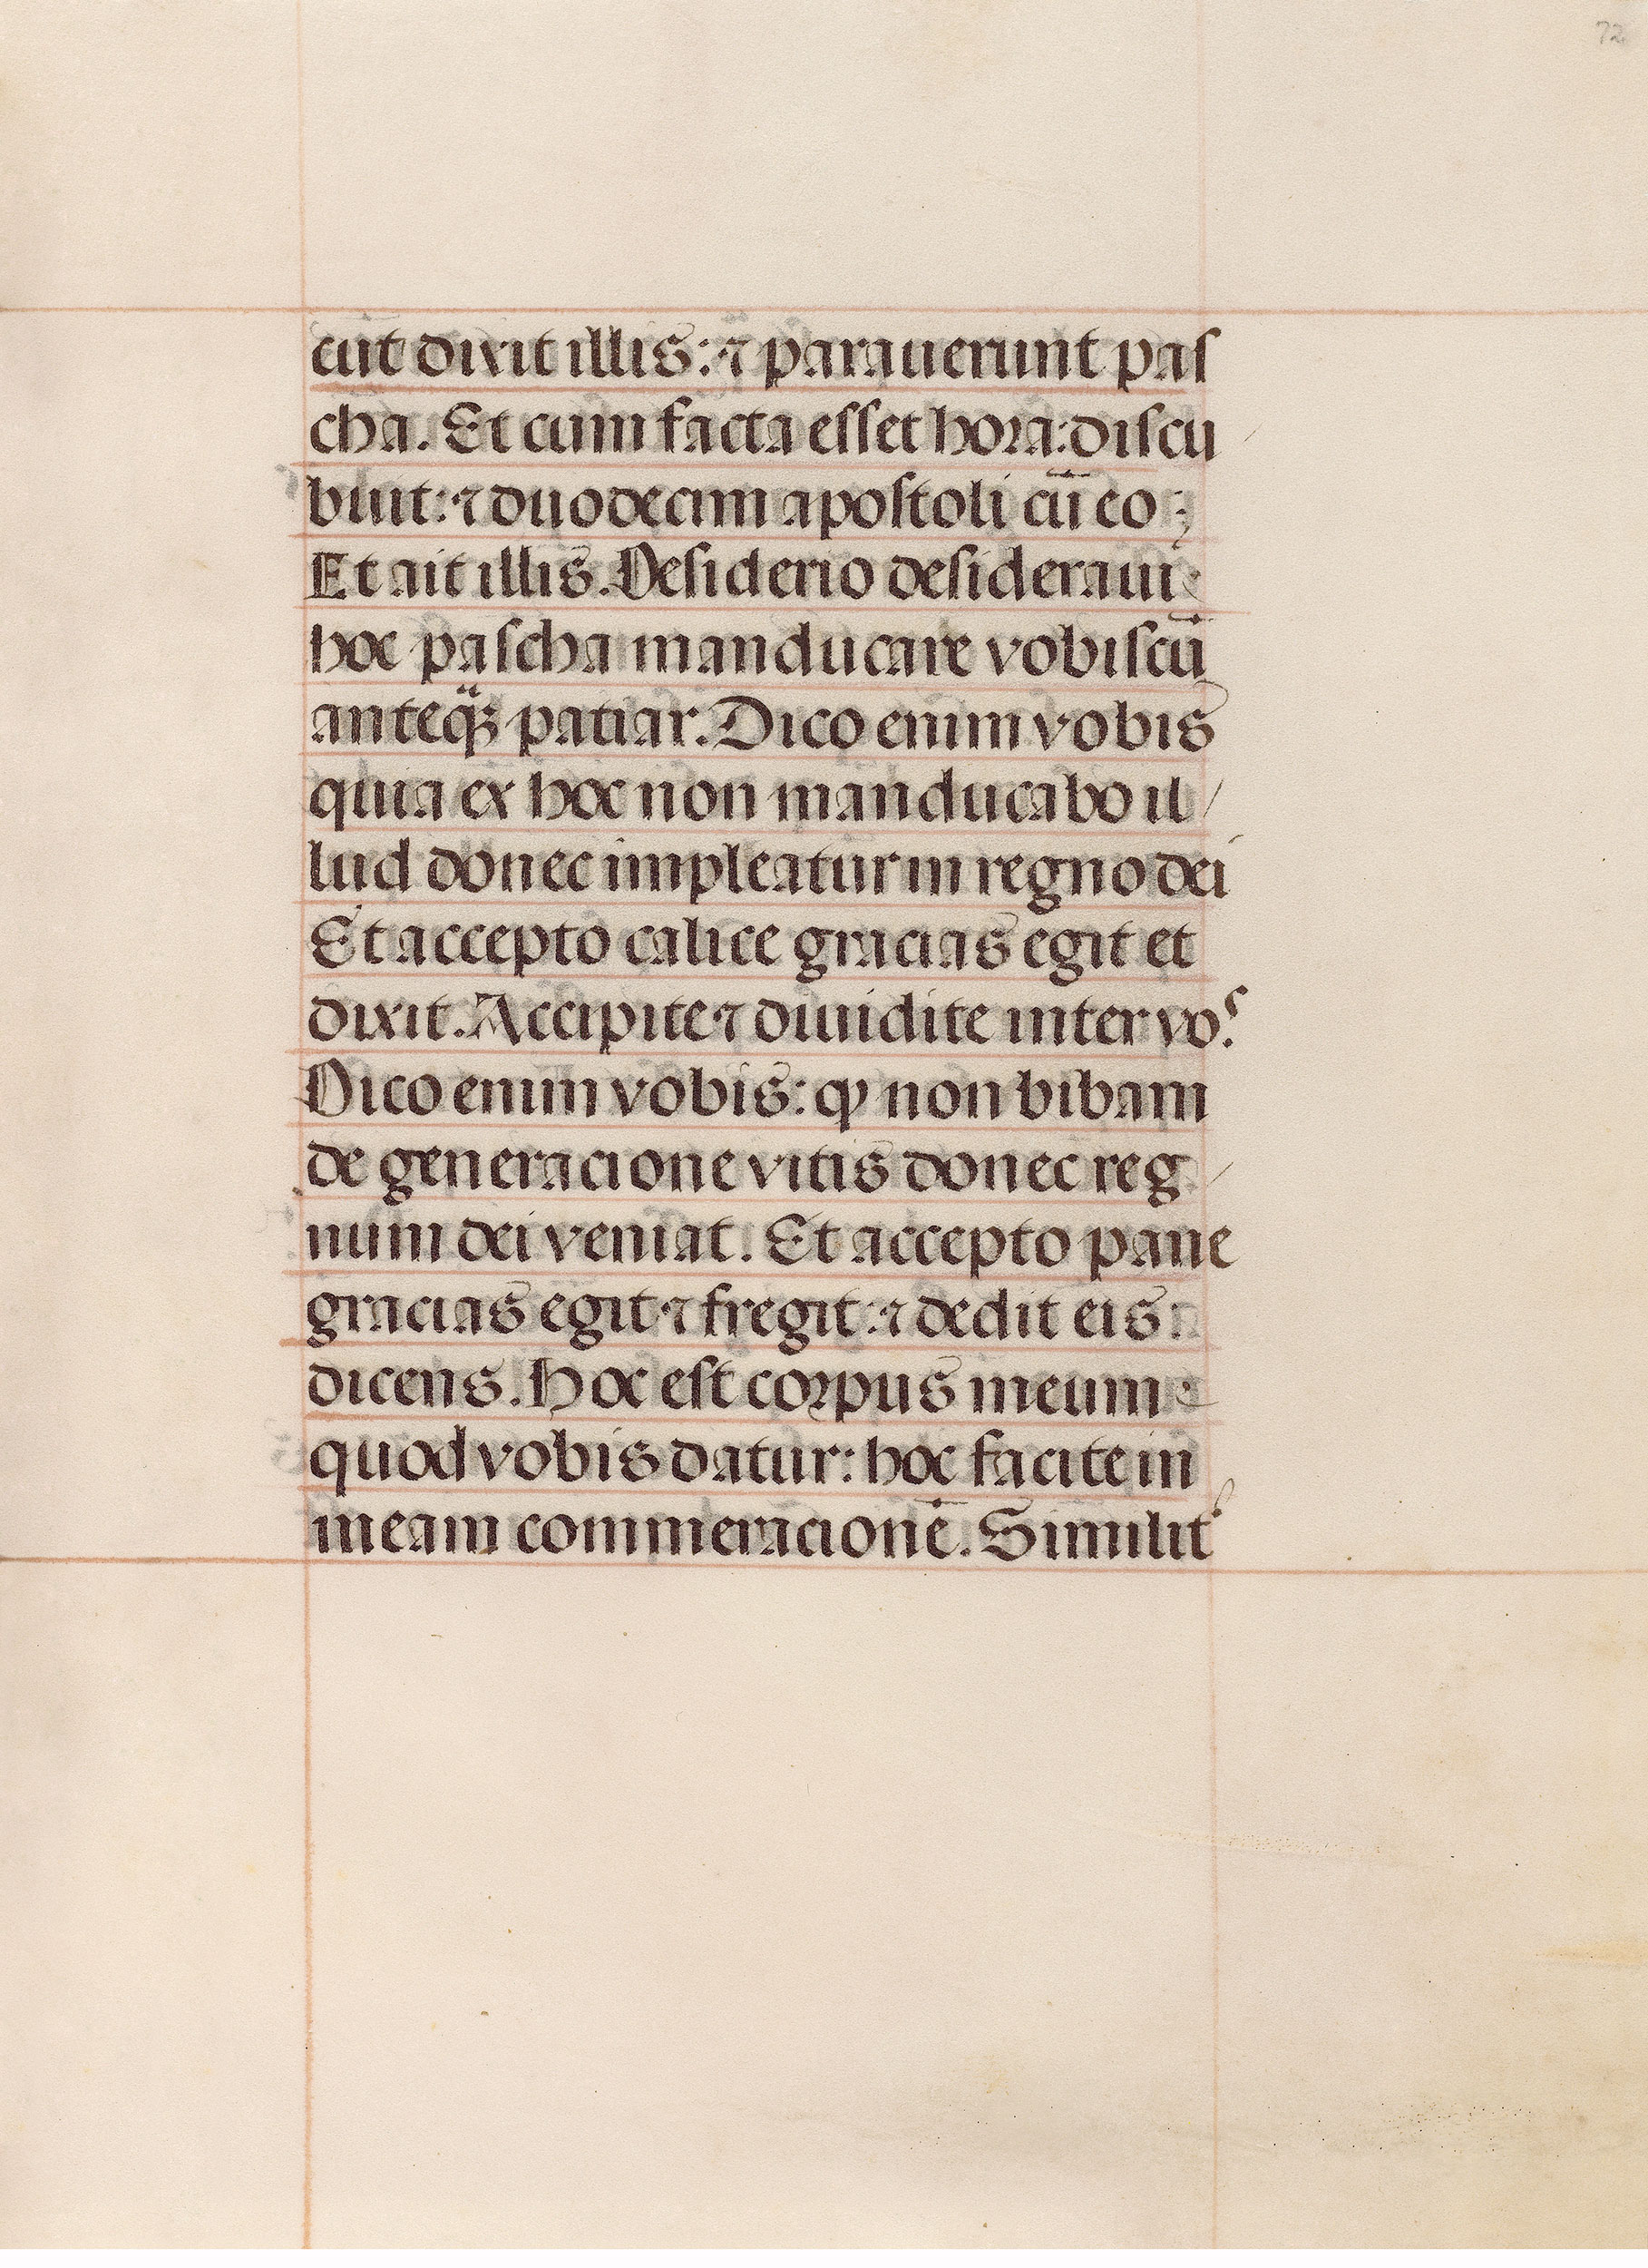 72
cut dixit illis: ⁊ parauerunt paſ
cha. Et cum facta eſſet hora: diſcu
buit: ⁊ duodecim apoſtoli cū eo
Et ait illis. Deſiderio deſideraui
hoc paſcha manducare vobiſcū
anteqᷓꝫ patiar. Dico enim vobis
quia ex hoc non manducabo il/
lud donec impleatur in regno dei
Et accepto calice gracias egit et
dixit. Accipite ⁊ diuidite inter voſ.
Dico enim vobis: ꝙ non bibam
de generacione vitis donec reg/
num dei veniat. Et accepto pane
gracias egit ⁊ fregit: ⁊ dedit eis
dicens. Hoc eſt corpus meum
quod vobis datur: hoc facite in
meam commeracionē. Similit᾽